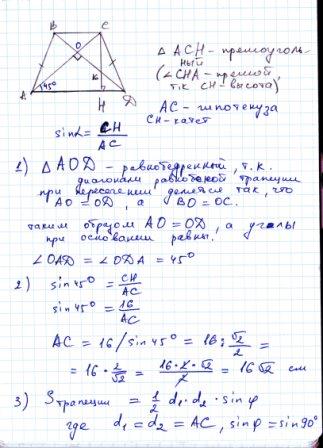 B C
O
K
45°
A H D
△ ACH - прямоуголь-
ный
(∠CHA - прямой,
т.к CH - высота)
AC - гипотенуза
CH - катет
sin∠ = CH/AC
1) △ AOD - равнобедренный, т.к.
диагонали равнобокой трапеции
при пересечении делятся так, что
AO = OD, а BO = OC.
таким образом AO = OD, а углы
при основании равны.
∠OAD = ∠ODA = 45°
2) sin 45° = CH/AC
sin 45° = 16/AC
AC = 16 / sin 45° = 16 : √2/2 =
= 16 · 2/√2 = 16 · 2 · √2 / 2 = 16 √2 см
3) S трапеции = 1/2 d₁ · d₂ · sin φ
где d₁ = d₂ = AC, sin φ = sin 90°